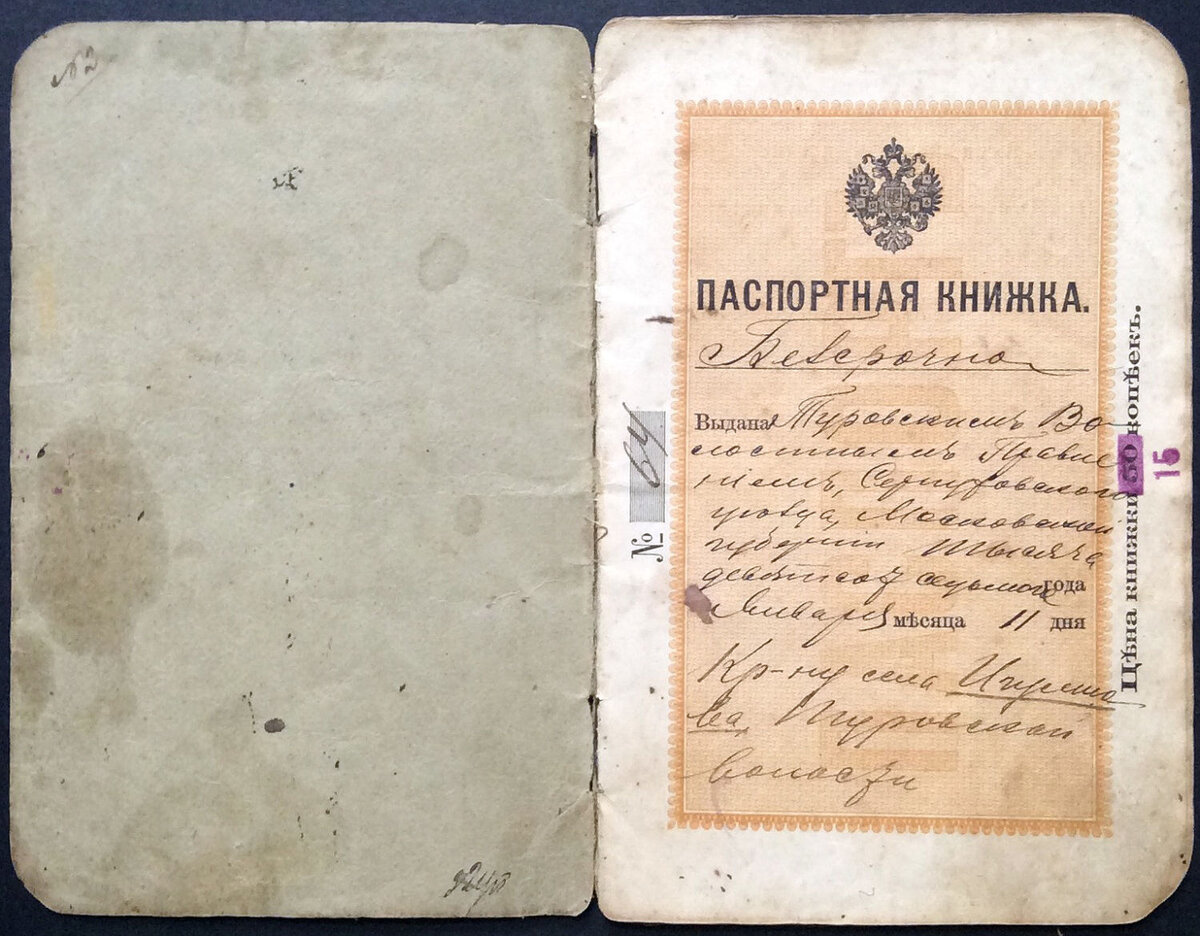 № 64
ПАСПОРТНАЯ КНИЖКА.
Безсрочно
Выдана Туровскимъ Во-
лостнымъ Правле-
ніемъ, Серпуховского
уѣзда, Московской
губерніи тысяча
девятсот седьмого года
Января мѣсяца 11 дня
Кр-ну села
Туровской
волости
Цѣна книжки 50 копѣекъ.
15